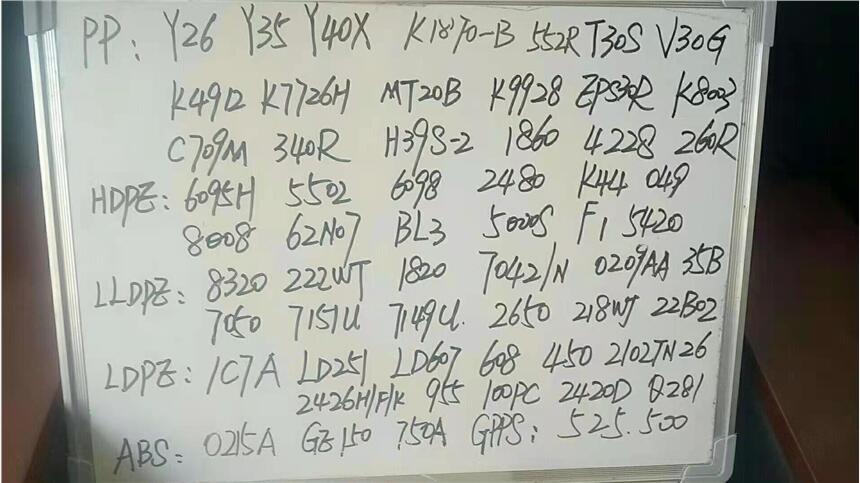 PP: Y26 Y35 Y40X K1870-B 552R T30S V30G
K4912 K7726H MT20B K9928 EPS30R K8003
C709M 340R H39S-2 1860 4228 260R
HDPE: 6095H 5502 6098 2480 K44 049
8008 62N07 BL3 5000S F1 5420
LLDPE: 8320 222WT 1820 7042/N 0209AA 35B
7050 7151U 7149U. 2650 218WJ 22B02
LDPE: 1C7A LD251 LD607 608 450 2102TN26
2426H/F/K 955 100PC 2420D Q281
ABS: 0215A GE150 750A GPPS: 525.500